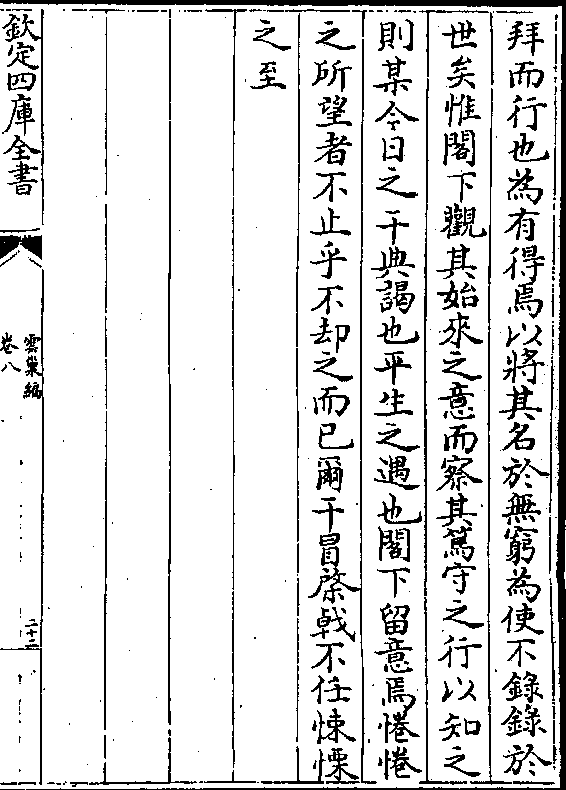 拜而行也為有得焉以將其名於無窮為使不錄錄於
世矣惟閣下觀其始來之意而察其篤守之行以知之
則某今日之干典謁也平生之遇也閣下留意焉惓惓
之所望者不止乎不却之而已爾干冒棨戟不任悚慄
之至
欽定四庫全書
雲巢編
卷八
二十二